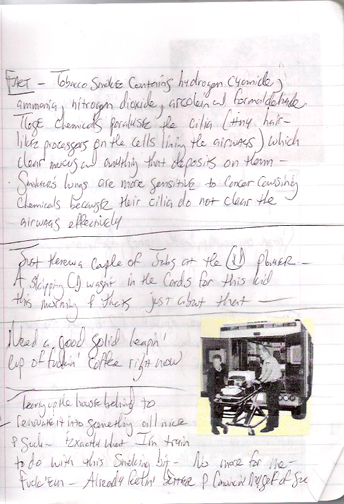 FACT - Tobacco Smoke Contains hydrogen cyanide,
ammonia, nitrogen dioxide, acrolein and formaldehyde
These chemicals paralyse the cilia (tiny hair-
like processes on the cells lining the airways) which
clear mucus and anything that deposits on them -
Smokers lungs are more sensitive to Cancer Causing
Chemicals because their cilia do not clear the
airways effectively
Just threw a couple of Jabs at the CD player -
A Skipping CD wasn't in the Cards for this kid
this morning & thats just about that -
Need a good solid heapin'
cup of fuckin' Coffee right now
Tearing up the house to
renovate it into something all nice
& Such - Exactly what I'm tryin
to do with this Smoking bit - No more for me -
Fuck 'em - Already feelin' better &